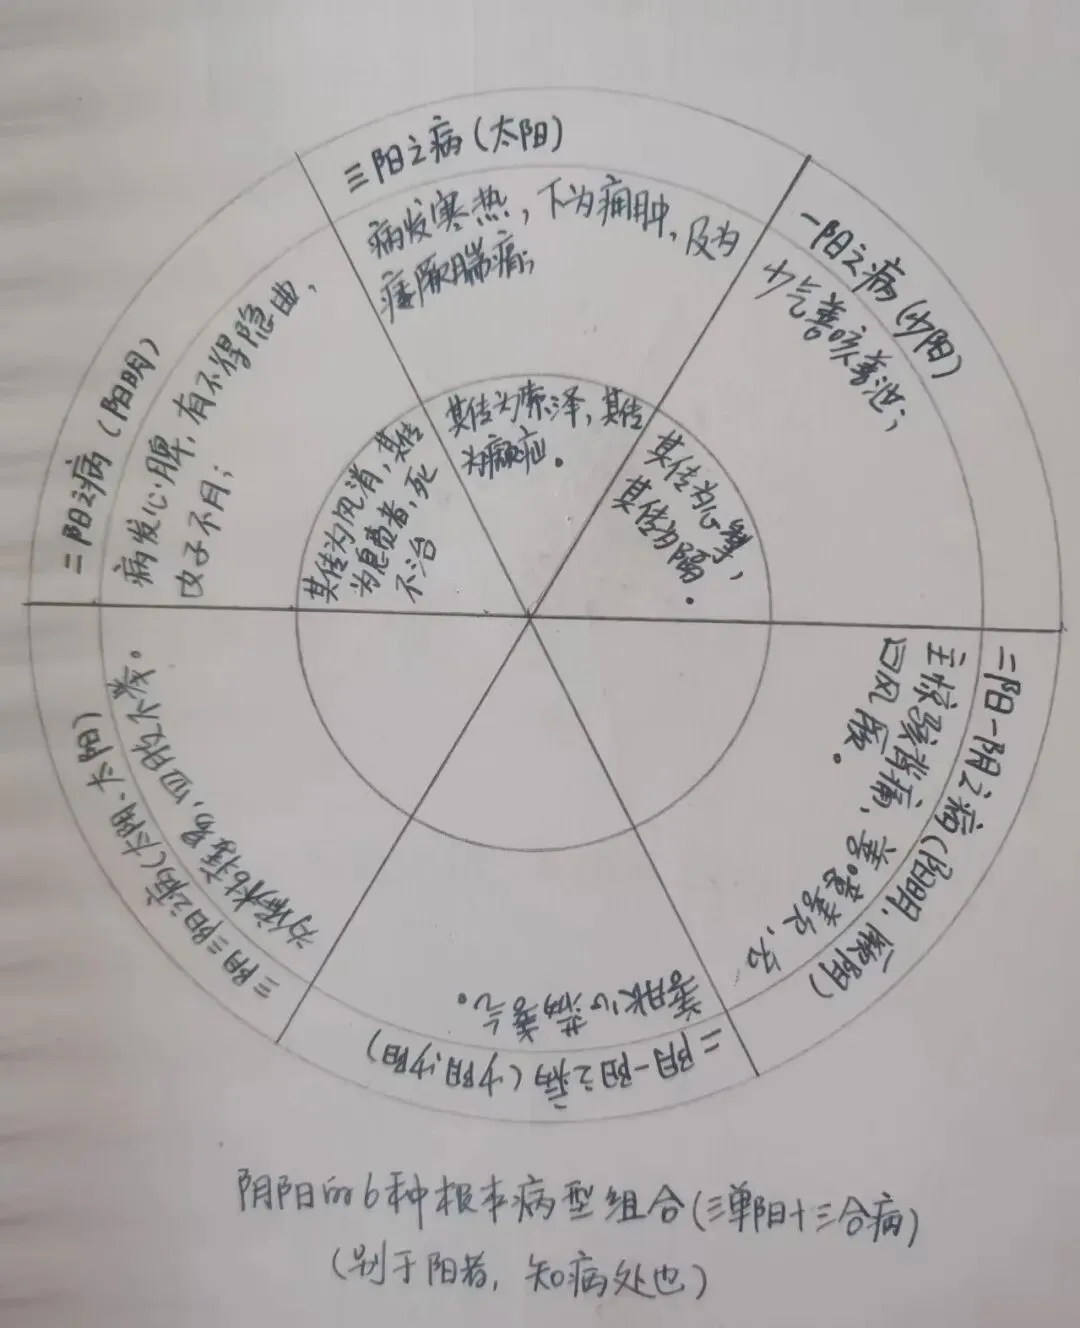 三阳之病(太阳)
病发寒热，下为痈肿，及为
痿厥腨痛；
其传为索泽，其传
为癫疝。
一阳之病(少阳)
少气善咳善泄；
其传为心掣，
其传为隔。
二阳一阴之病(阳明、厥阴)
主惊骇背痛，善噫善欠，名
曰风厥。
二阴一阳之病(少阴少阳)
善胀心满善气。
三阴三阳之病(太阴、太阳)
为偏枯痿易，四肢不举。
二阳之病(阳明)
病发心脾，有不得隐曲，
女子不月；
其传为风消，其传
为息贲者，死
不治
阴阳的6种根本病型组合(三单阳+三合病)
(别于阳者，知病处也)